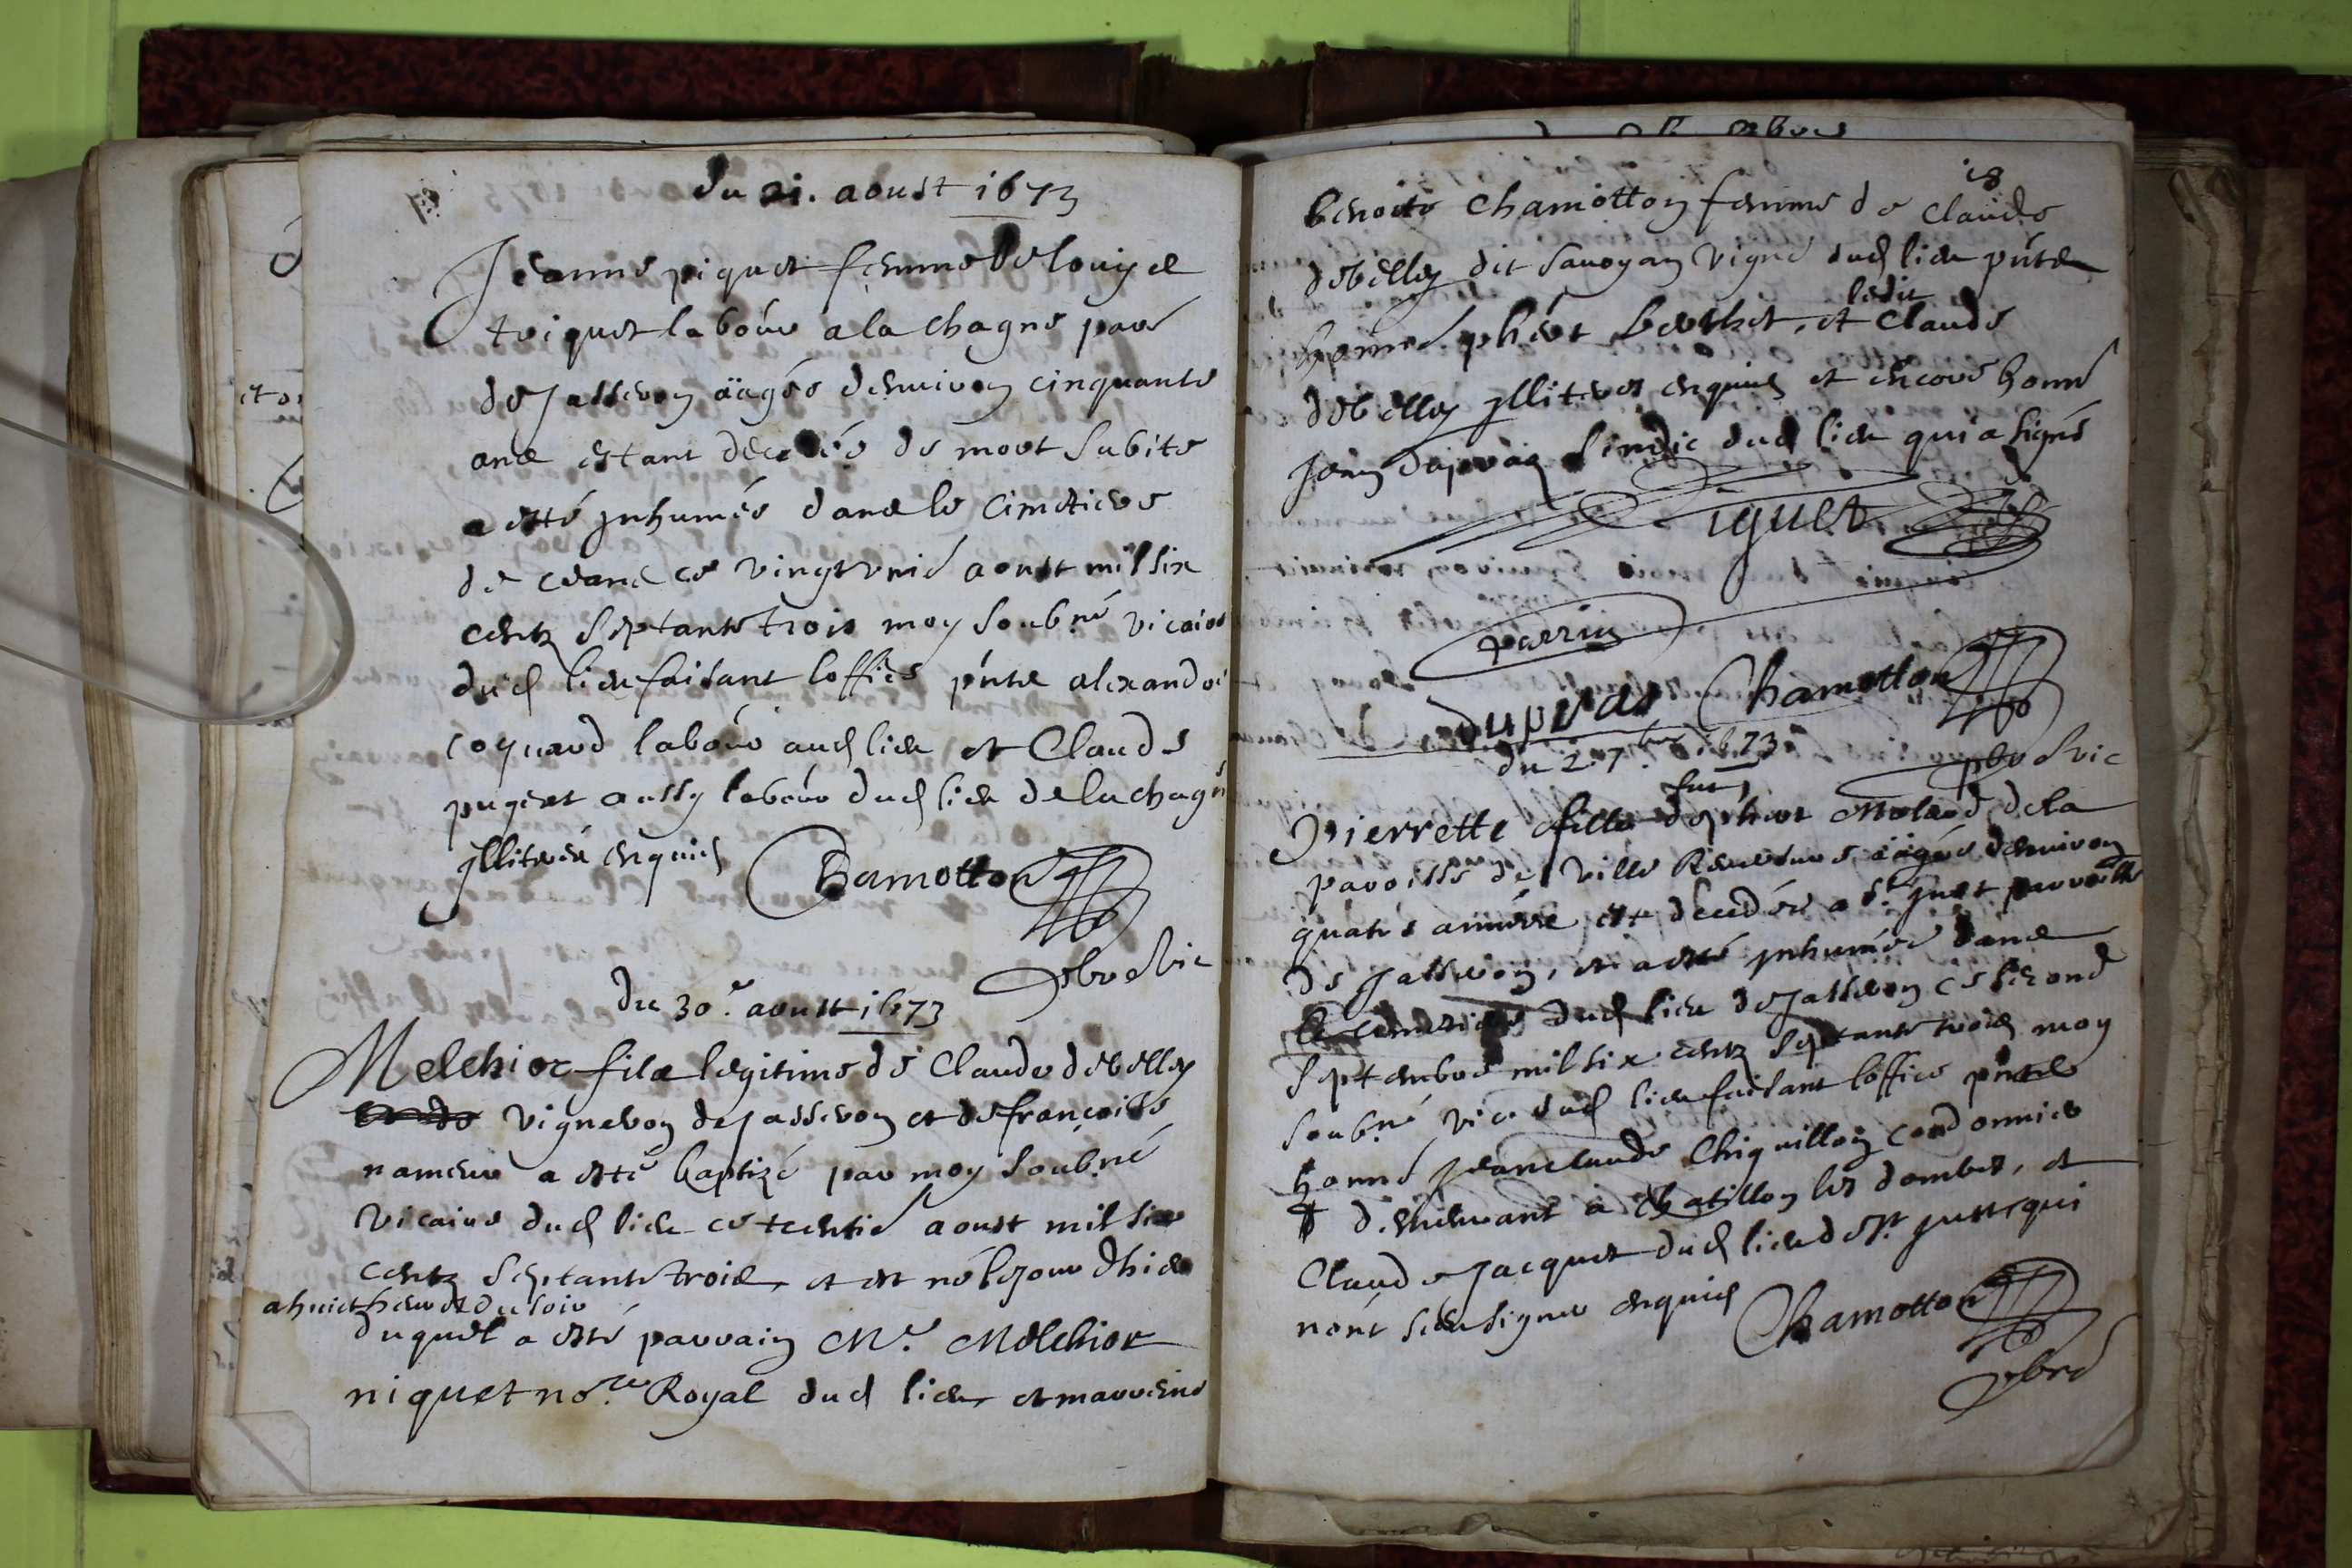 du 21. aoust 1673
Jeanne piquet femme de louys
triquet labór a la chagne parr
de Jasseron äagée denviron cinquante
ans estant decedée de mort subite
a esté jnhumée dans le cimetiere
de ceans ce vingt vnié aoust mil six
centz septante trois moy soubné vicaire
dud lieu faisant loffice pnts alexandre
coquard labór aud lieu et Claude
pugeat aussy labór dud lieu de la chagn
jlliteréz enquis Chamotton
pbre Vic
du 30.e aoust 1673
Melchior filz legitime de Claude debelley
vigneron de Jasseron et de francoise
a esté baptizé par moy soubné
vicaire dud lieu ce trentié aoust mil six
centz septante trois, et est né le jour dhier
a huict heures du soir
duquel a esté parrain Mr. Melchior
niquet nore. Royal dud lieu et marreine
18
benoite Chamotton femme de Claude
debelley dit savoyan vigné dud lieu pnts
ledit
honné phert berthet, et Claude
debelley jlliterés enquis et encore honné
Jean dupras sindic dud lieu qui a signé
Niquet
parrin
dupras Chamotton
pbre Vic
du 2. 7bre 1673
fut
Pierrette fille de phert Molard de la
paroisse de Ville Reversure äagée denviron
quatre années est decedée a St. just parroisse
de Jasseron, et a esté jnhumée dans
le cimetiere dud lieu de Jasseron ce second
septembre mil six centz septante trois moy
soubné vic. dud lieu faisant loffice pnts
honné Jean claude Chiquillon cordonnier
demeurant a Chatillon les dombes, et
Claude Jacquet dud lieu de St. just qui
nont sceu signer enquis Chamotton
pbre